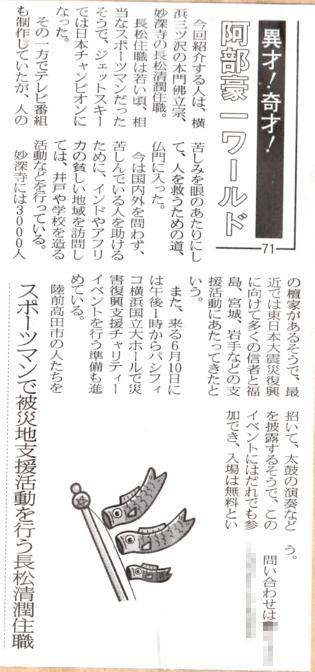 異才！奇才！
阿部豪一ワールド
71
今回紹介する人は、横
浜三ツ沢の本門佛立宗、
妙深寺の長松清潤住職。
長松住職は若い頃、相
当なスポーツマンだった
そうで、ジェットスキー
では日本チャンピオンに
なった。
その一方でテレビ番組
も制作していたが、人の
苦しみを眼のあたりにし
て、人を救うための道、
仏門に入った。
今は国内外を問わず、
苦しんでいる人を助ける
ために、インドやアフリ
カの貧しい地域を訪問し
ては、井戸や学校を造る
活動などを行っている。
妙深寺には3000人
の檀家があるそうで、最
近では東日本大震災復興
に向けて多くの信者と福
島、宮城、岩手などの支
援活動にあたってきたと
いう。
また、来る6月10日に
は午後1時からパシフィ
コ横浜国立大ホールで災
害復興支援チャリティー
イベントを行う準備も進
めている。
陸前高田市の人たちを
招いて、太鼓の演奏など
を披露するそうで、この
イベントにはだれでも参
加でき、入場は無料とい
う。
問い合わせは
スポーツマンで被災地支援活動を行う長松清潤住職